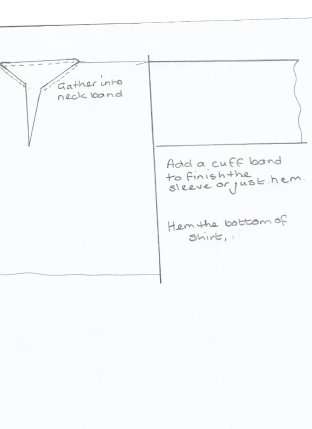 Gather into
neck band
Add a cuff band
to finish the
sleeve or just hem.
Hem the bottom of
shirt,.